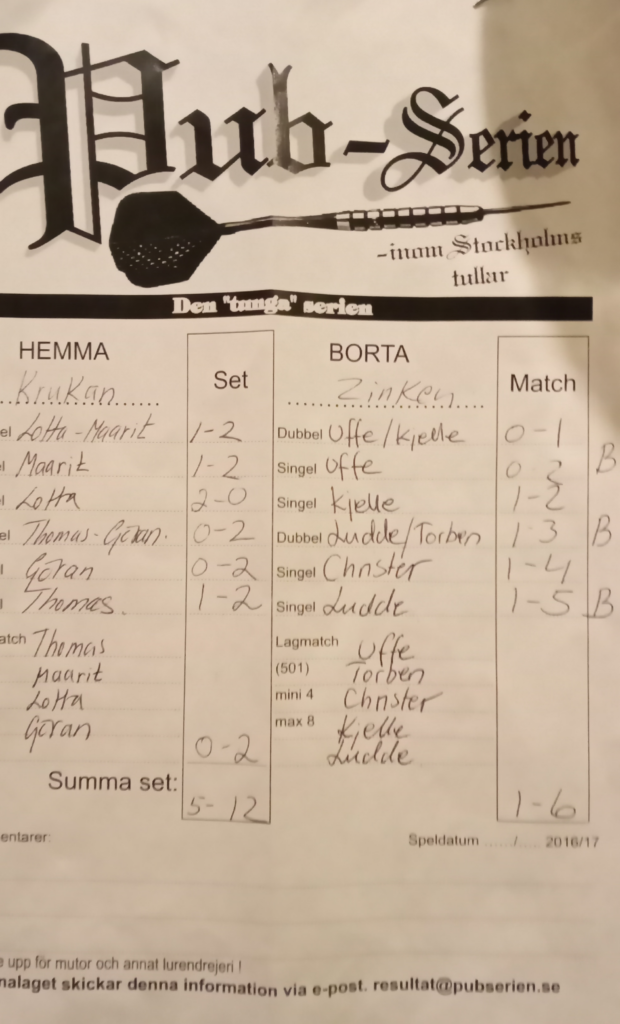 Pub-Serien
-inom Stockholms
tullar
Den "tunga" serien
HEMMA Set BORTA Match
Krukan Zinken
el Lotta-Maarit 1-2 Dubbel Uffe/Kjelle 0-1
l Maarit 1-2 Singel Uffe 0-2 B
l Lotta 2-0 Singel Kjelle 1-2
el Thomas-Göran. 0-2 Dubbel Ludde/Torben 1-3 B
l Göran 0-2 Singel Christer 1-4
l Thomas. 1-2 Singel Ludde 1-5 B
atch Thomas Lagmatch Uffe
Maarit (501) Torben
Lotta mini 4 Christer
Göran max 8 Kjelle
0-2 Ludde
Summa set:
5-12 1-6
entarer: Speldatum ....../...... 2016/17
e upp för mutor och annat lurendrejeri !
nalaget skickar denna information via e-post. resultat@pubserien.se